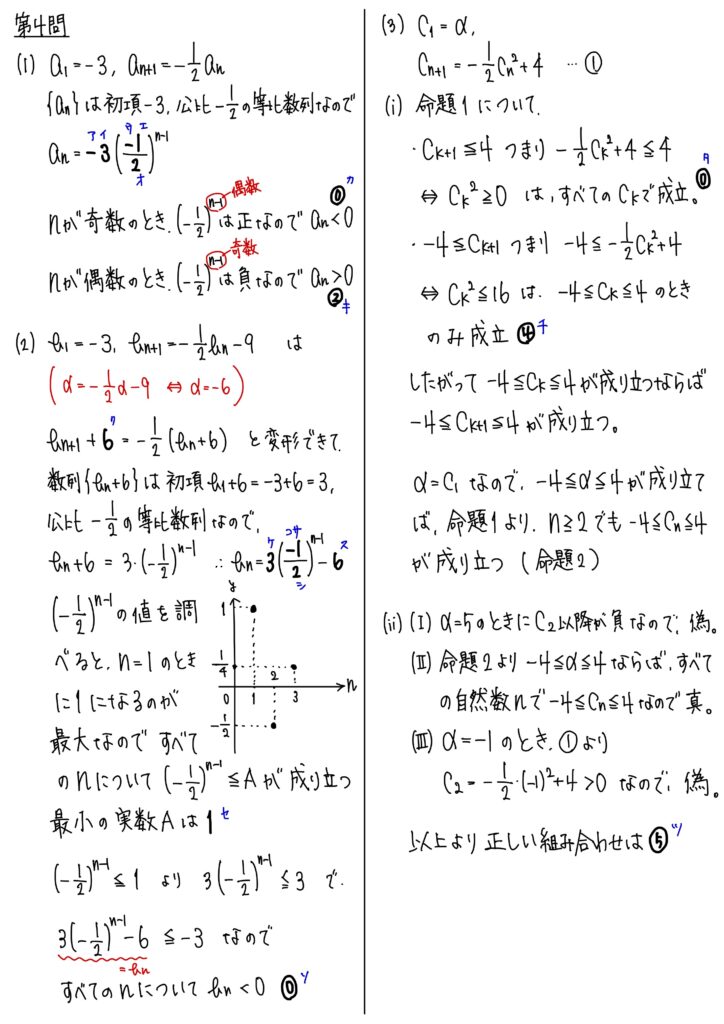 第4問
(1) a₁=-3, aₙ₊₁=-1/2 aₙ
{aₙ}は初項-3, 公比-1/2の等比数列なので
アイ ウエ
aₙ=-3(-1/2)ⁿ⁻¹
オ
偶数 カ
nが奇数のとき、(-1/2)ⁿ⁻¹は正なので aₙ<0 ⓪
奇数
nが偶数のとき、(-1/2)ⁿ⁻¹は負なので aₙ>0
② キ
(2) b₁=-3, bₙ₊₁=-1/2 bₙ-9 は
(α=-1/2 α-9 ⇔ α=-6)
bₙ₊₁+6 ク =-1/2(bₙ+6) と変形できて、
数列{bₙ+6}は初項b₁+6=-3+6=3,
公比-1/2の等比数列なので、
ケ コサ ス
bₙ+6=3・(-1/2)ⁿ⁻¹ ∴bₙ=3(-1/2)ⁿ⁻¹-6
シ
(-1/2)ⁿ⁻¹の値を調
べると、n=1のとき
に1になるのが
最大なので すべて
のnについて(-1/2)ⁿ⁻¹≦Aが成り立つ
最小の実数Aは1 セ
y
1
1/4
0 1 2 3 n
-1/2
(-1/2)ⁿ⁻¹≦1 より 3(-1/2)ⁿ⁻¹≦3 で、
3(-1/2)ⁿ⁻¹-6≦-3 なので
=bₙ
すべてのnについて bₙ<0 ⓪ ソ
(3) C₁=α,
Cₙ₊₁=-1/2 Cₙ²+4 …①
(i) 命題1について、
・Cₖ₊₁≦4 つまり -1/2 Cₖ²+4≦4
⇔ Cₖ²≧0 は、すべてのCₖで成立。⓪ タ
・-4≦Cₖ₊₁ つまり -4≦-1/2 Cₖ²+4
⇔ Cₖ²≦16 は、-4≦Cₖ≦4 のとき
のみ成立 ④ チ
したがって -4≦Cₖ≦4が成り立つならば
-4≦Cₖ₊₁≦4が成り立つ。
α=C₁なので、-4≦α≦4が成り立て
ば、命題1より、n≧2でも-4≦Cₙ≦4
が成り立つ (命題2)
(ii) (I) α=5のときにC₂以降が負なので、偽。
(II) 命題2より -4≦α≦4ならば、すべて
の自然数nで-4≦Cₙ≦4なので真。
(III) α=-1のとき、①より
C₂=-1/2・(-1)²+4>0 なので、偽。
以上より 正しい組み合わせは ⑤ ツ